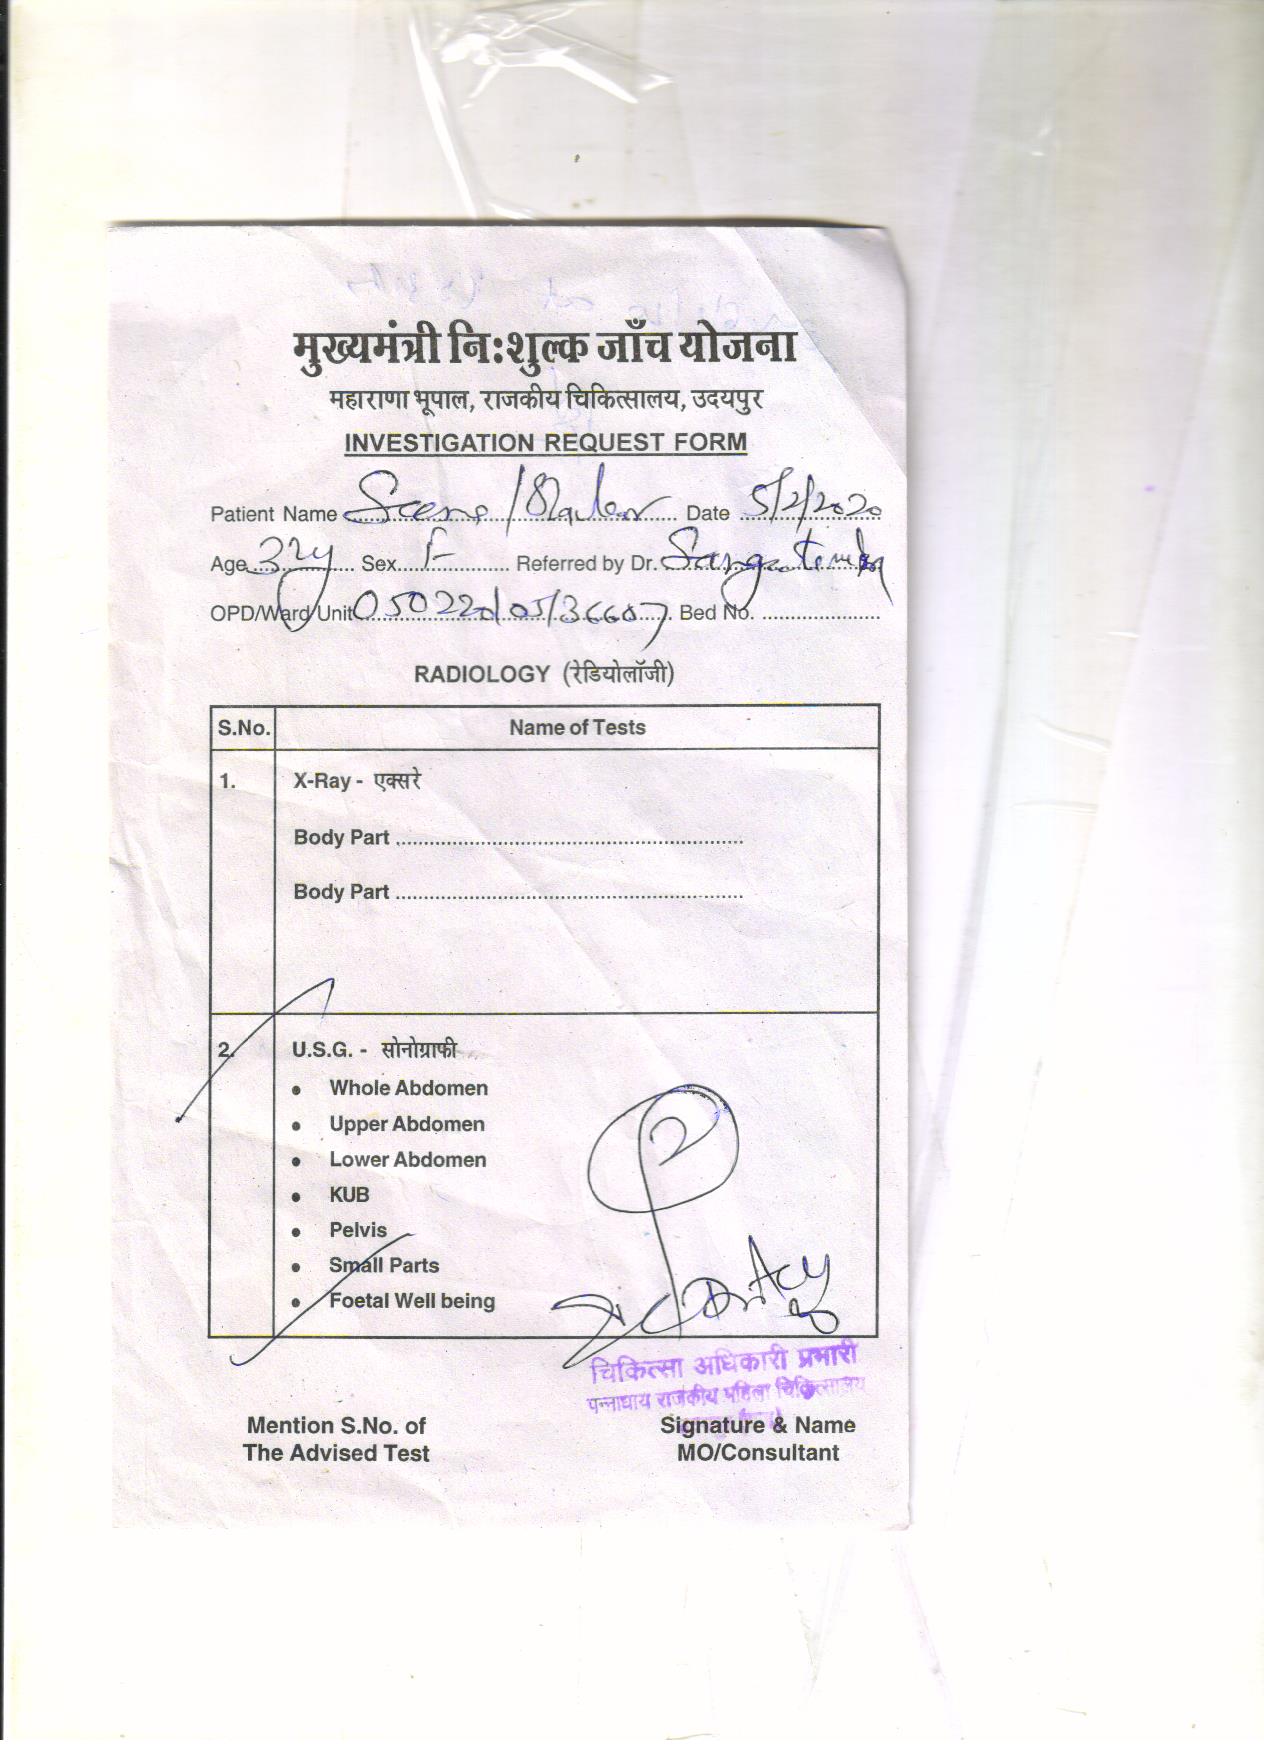 मुख्यमंत्री नि:शुल्क जाँच योजना
महाराणा भूपाल, राजकीय चिकित्सालय, उदयपुर
INVESTIGATION REQUEST FORM
Patient Name Date 5/2/2020
Age 32y Sex F Referred by Dr.
OPD/Ward/Unit 050220/05/36607 Bed No.
RADIOLOGY (रेडियोलॉजी)
S.No. Name of Tests
1. X-Ray - एक्सरे
Body Part
Body Part
2. U.S.G. - सोनोग्राफी
• Whole Abdomen
• Upper Abdomen
• Lower Abdomen
• KUB
• Pelvis
• Small Parts
• Foetal Well being
2
चिकित्सा अधिकारी प्रभारी
पन्नाधाय राजकीय महिला चिकित्सालय
Mention S.No. of Signature & Name
The Advised Test MO/Consultant